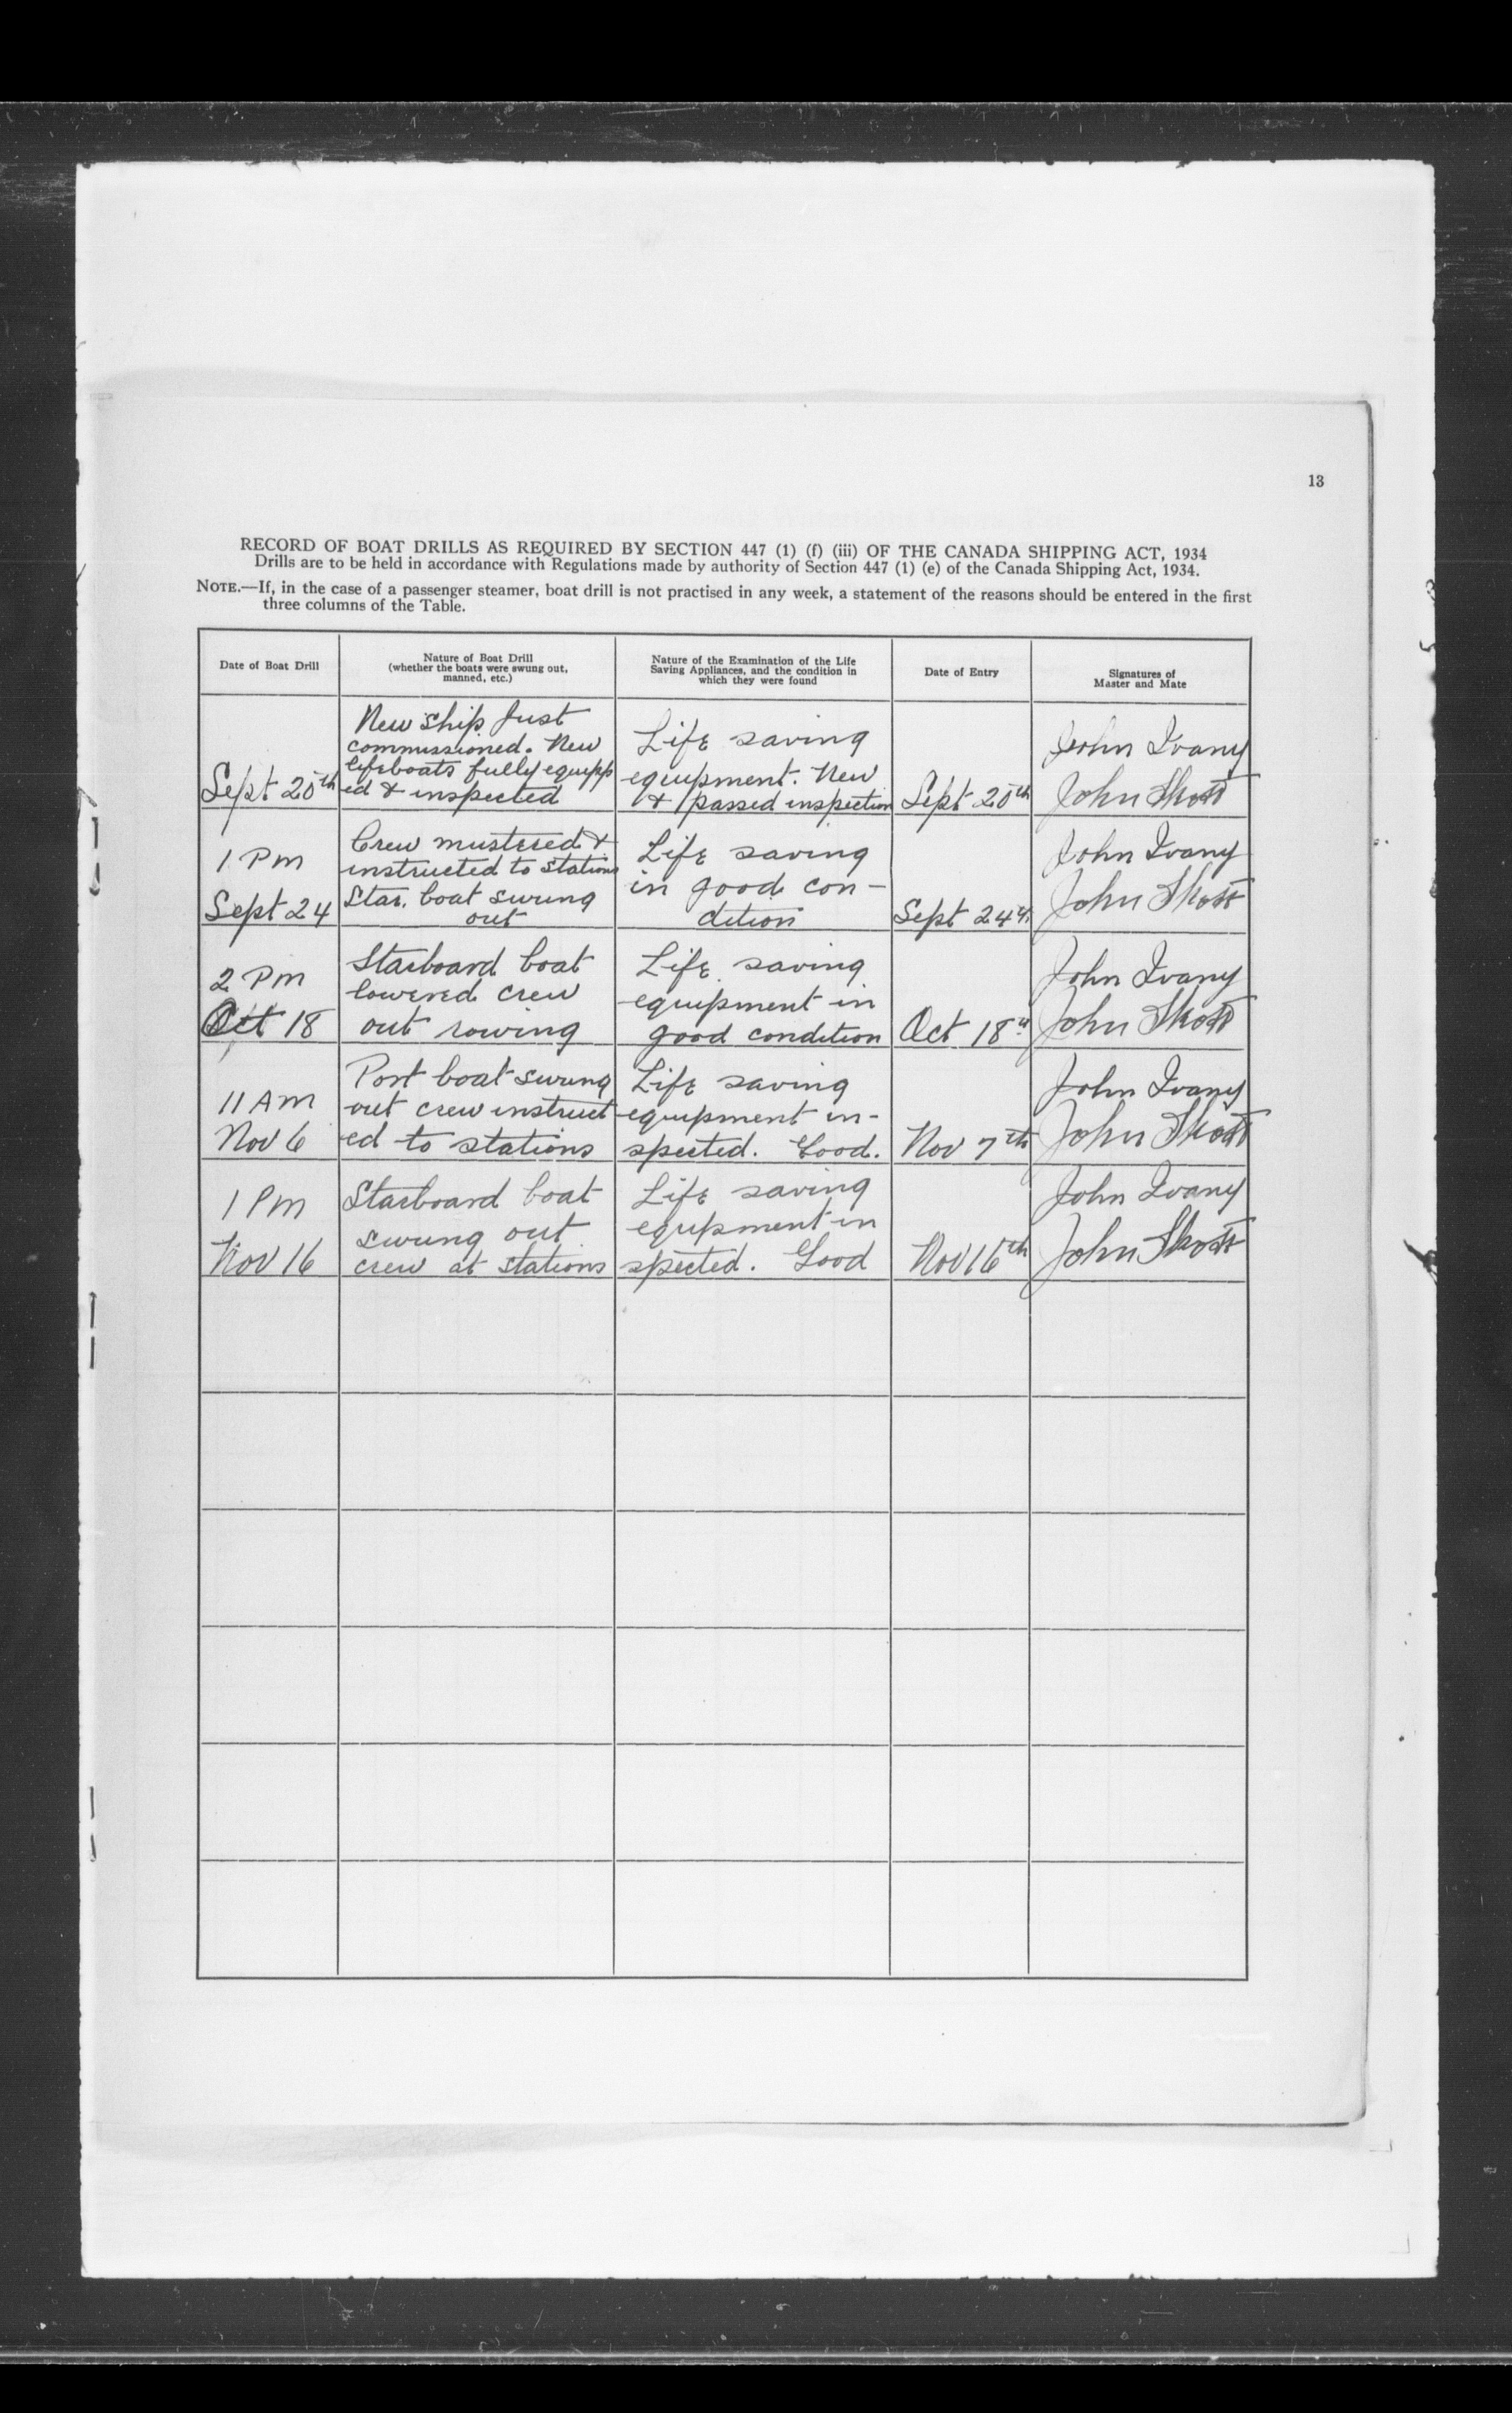 13
RECORD OF BOAT DRILLS AS REQUIRED BY SECTION 447 (1) (f) (iii) OF THE CANADA SHIPPING ACT, 1934
Drills are to be held in accordance with Regulations made by authority of Section 447 (1) (e) of the Canada Shipping Act, 1934.
NOTE.—If, in the case of a passenger steamer, boat drill is not practised in any week, a statement of the reasons should be entered in the first
three columns of the Table.
Date of Boat Drill
Nature of Boat Drill
(whether the boats were swung out,
manned, etc.)
Nature of the Examination of the Life
Saving Appliances, and the condition in
which they were found
Date of Entry
Signatures of
Master and Mate
Sept 20th
New Ship Just
commissioned. New
lifeboats fully equipp
ed & inspected
Life saving
equipment. New
& passed inspection
Sept 20th
John Ivany
John
1 Pm
Sept 24
Crew mustered &
instructed to stations
Star. boat swung
out
Life saving
in good con-
dition
Sept 24th
John Ivany
John
2 Pm
Oct 18
Starboard boat
lowered crew
out rowing
Life saving
equipment in
good condition
Oct 18th
John Ivany
John
11 Am
Nov 6
Port boat swung
out crew instruct
ed to stations
Life saving
equipment in-
spected. Good.
Nov 7th
John Ivany
John
1 Pm
Nov 16
Starboard boat
swung out
crew at stations
Life saving
equipment in
spected. Good
Nov 16th
John Ivany
John